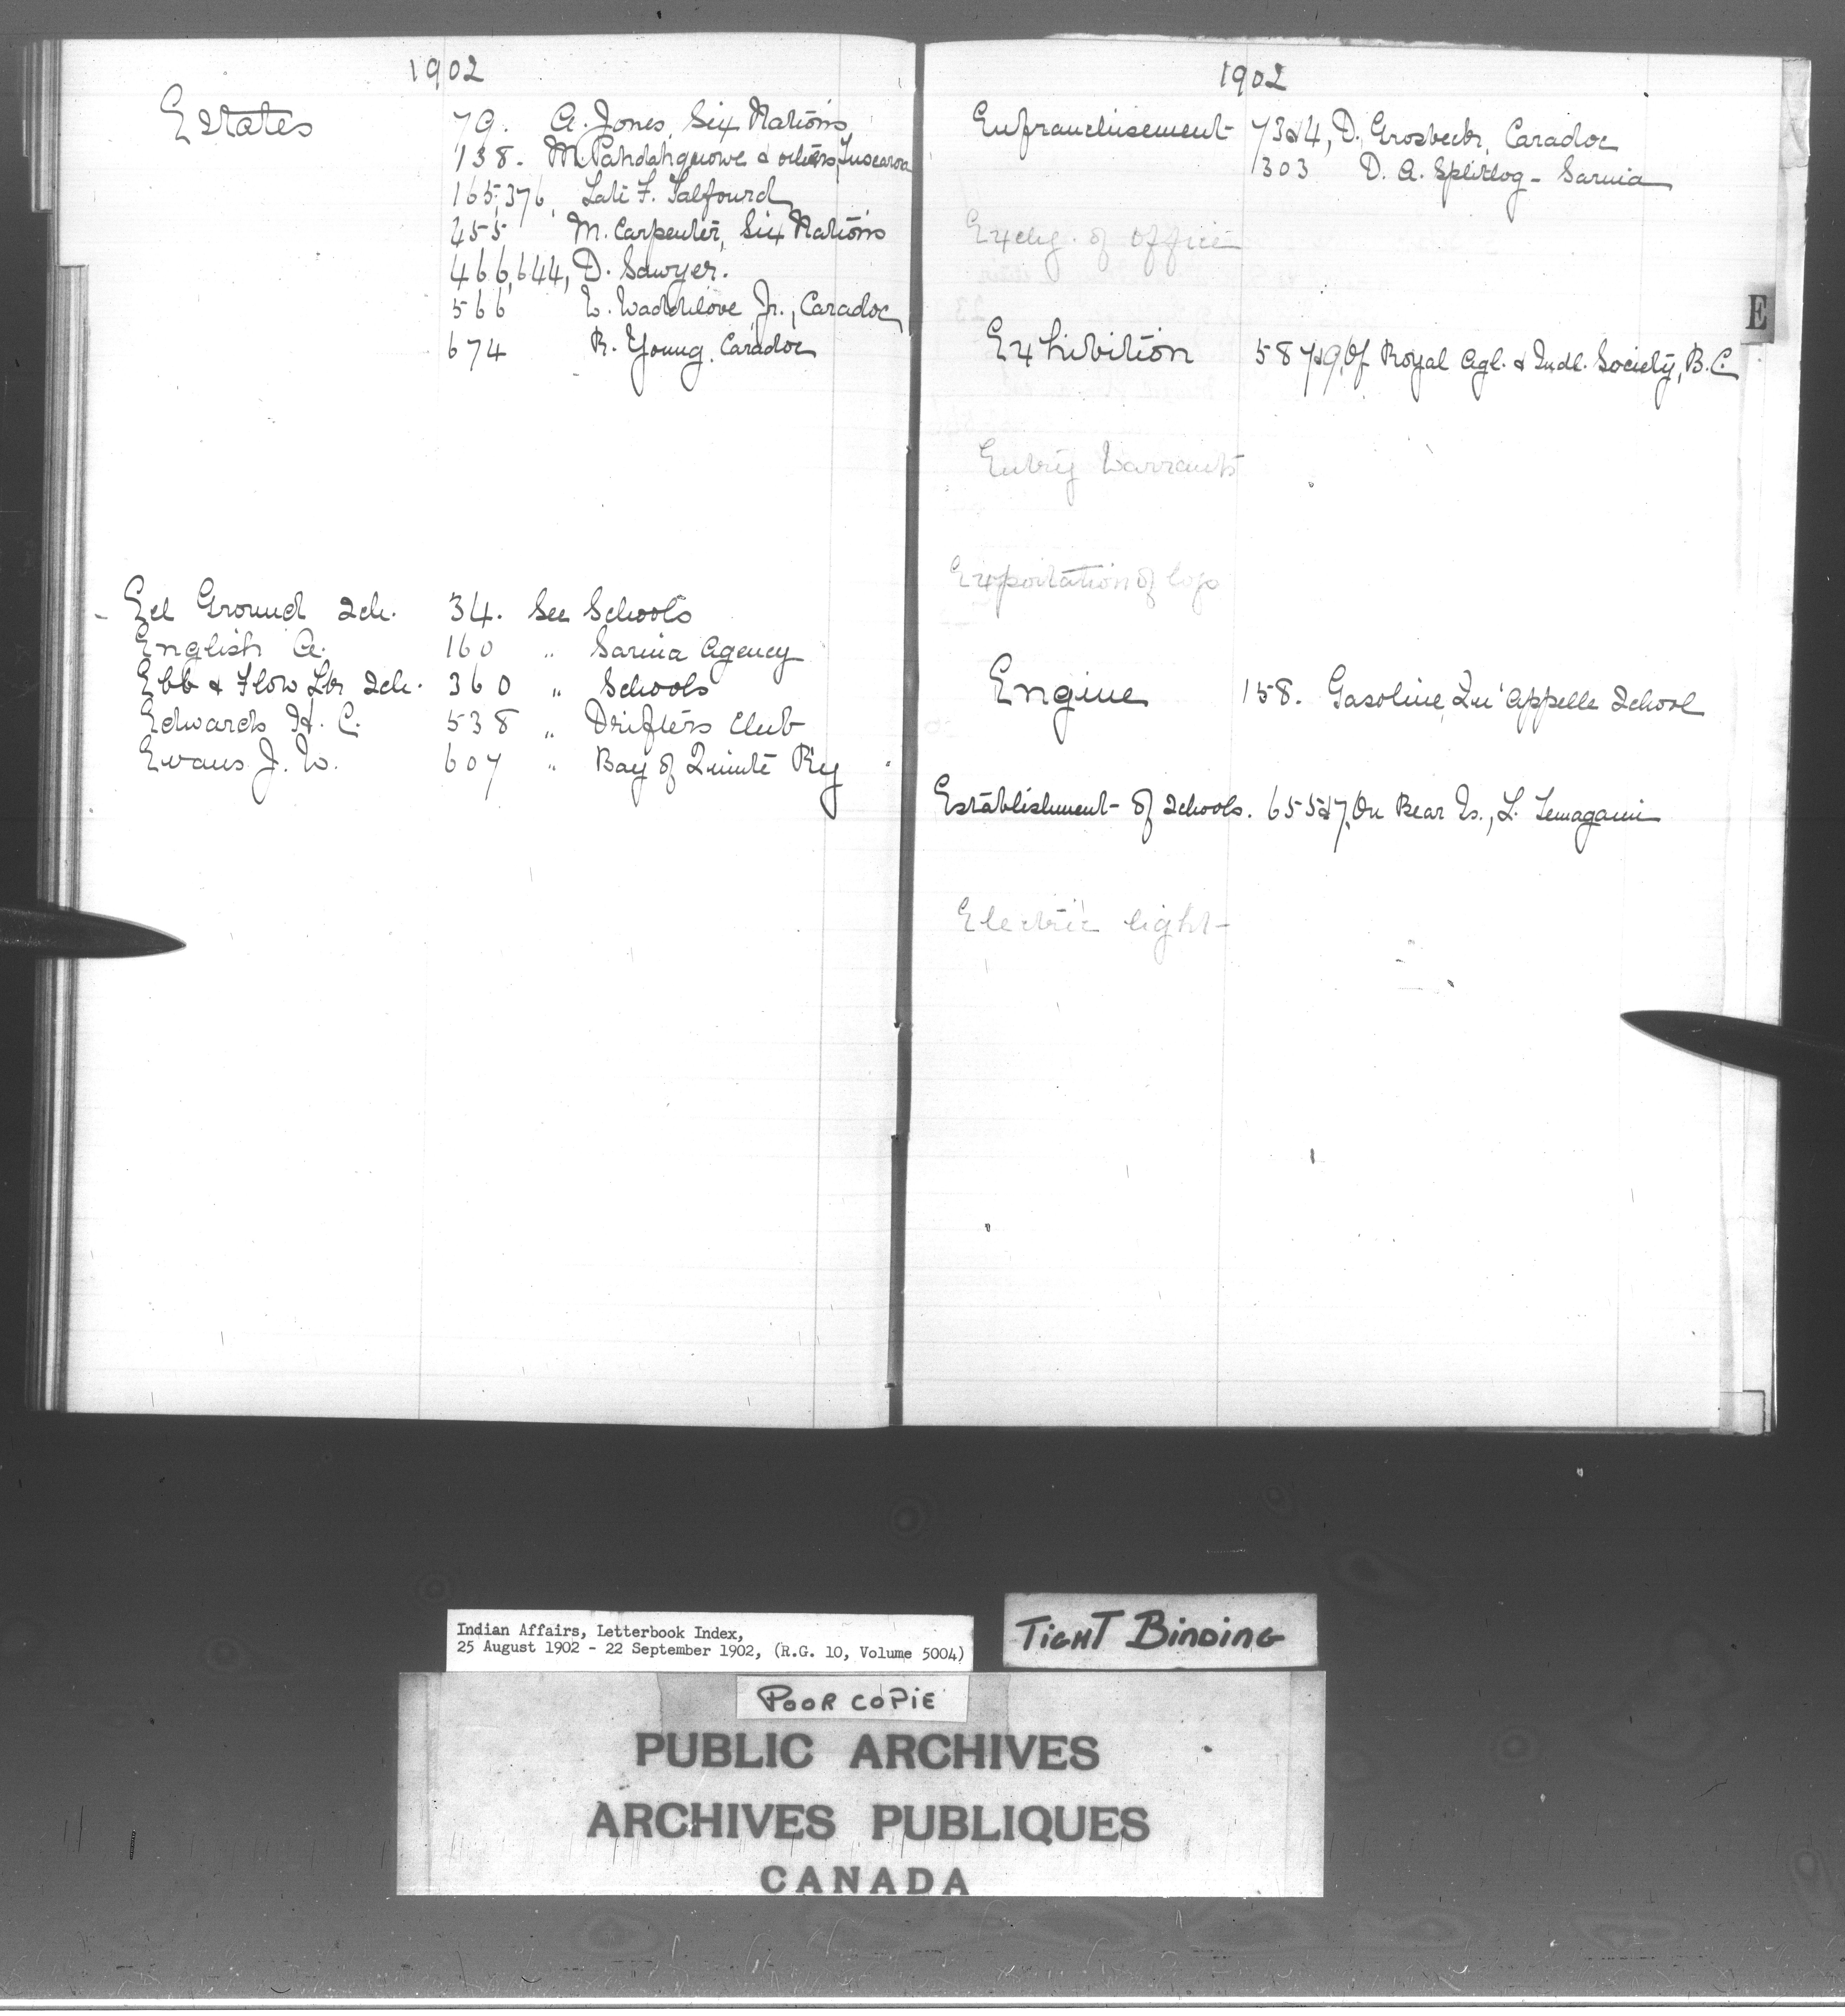 1902
Estates 79. A. Jones, Six Nations,
138. M. Pahdahquowe & others, Tuscarora
165, 376, Late F. Talfourd
455 M. Carpenter, Six Nations
466, 644, D. Sawyer.
566 W. Waddilove, Jr., Caradoc
674 R. Young, Caradoc
Eel Ground Sch. 34. See Schools
English A. 160 " Sarnia Agency
Ebb & Flow Lk Sch. 360 " Schools
Edwards H. C. 538 " Drifters Club
Evans J. W. 607 " Bay of Quinte Ry
1902
Enfranchisement 73&4, D. Grosbeck, Caradoc
1303 D. A. Splitlog - Sarnia
Exchg. of Office
Exhibition 587&9, Of Royal Agl. & Indl. Society, B.C.
E
Entry Warrants
Exportation of logs
Engine 158. Gasoline, Qu'Appelle School
Establishment of Schools. 655&7, On Bear Is., L. Temagami
Electric light
Indian Affairs, Letterbook Index,
25 August 1902 - 22 September 1902, (R.G. 10, Volume 5004)
TIGHT BINDING
POOR COPIE
PUBLIC ARCHIVES
ARCHIVES PUBLIQUES
CANADA